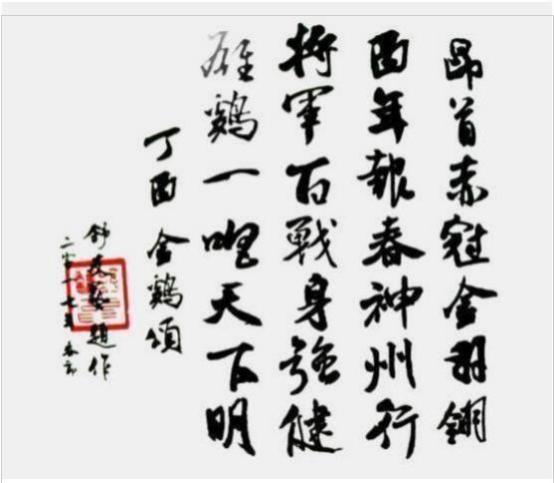 昂首赤冠金羽翎
酉年報春神州行
將軍百戰身強健
雄鷄一唱天下明
丁酉金鷄頌
舒友藝題作
二零一七年春節